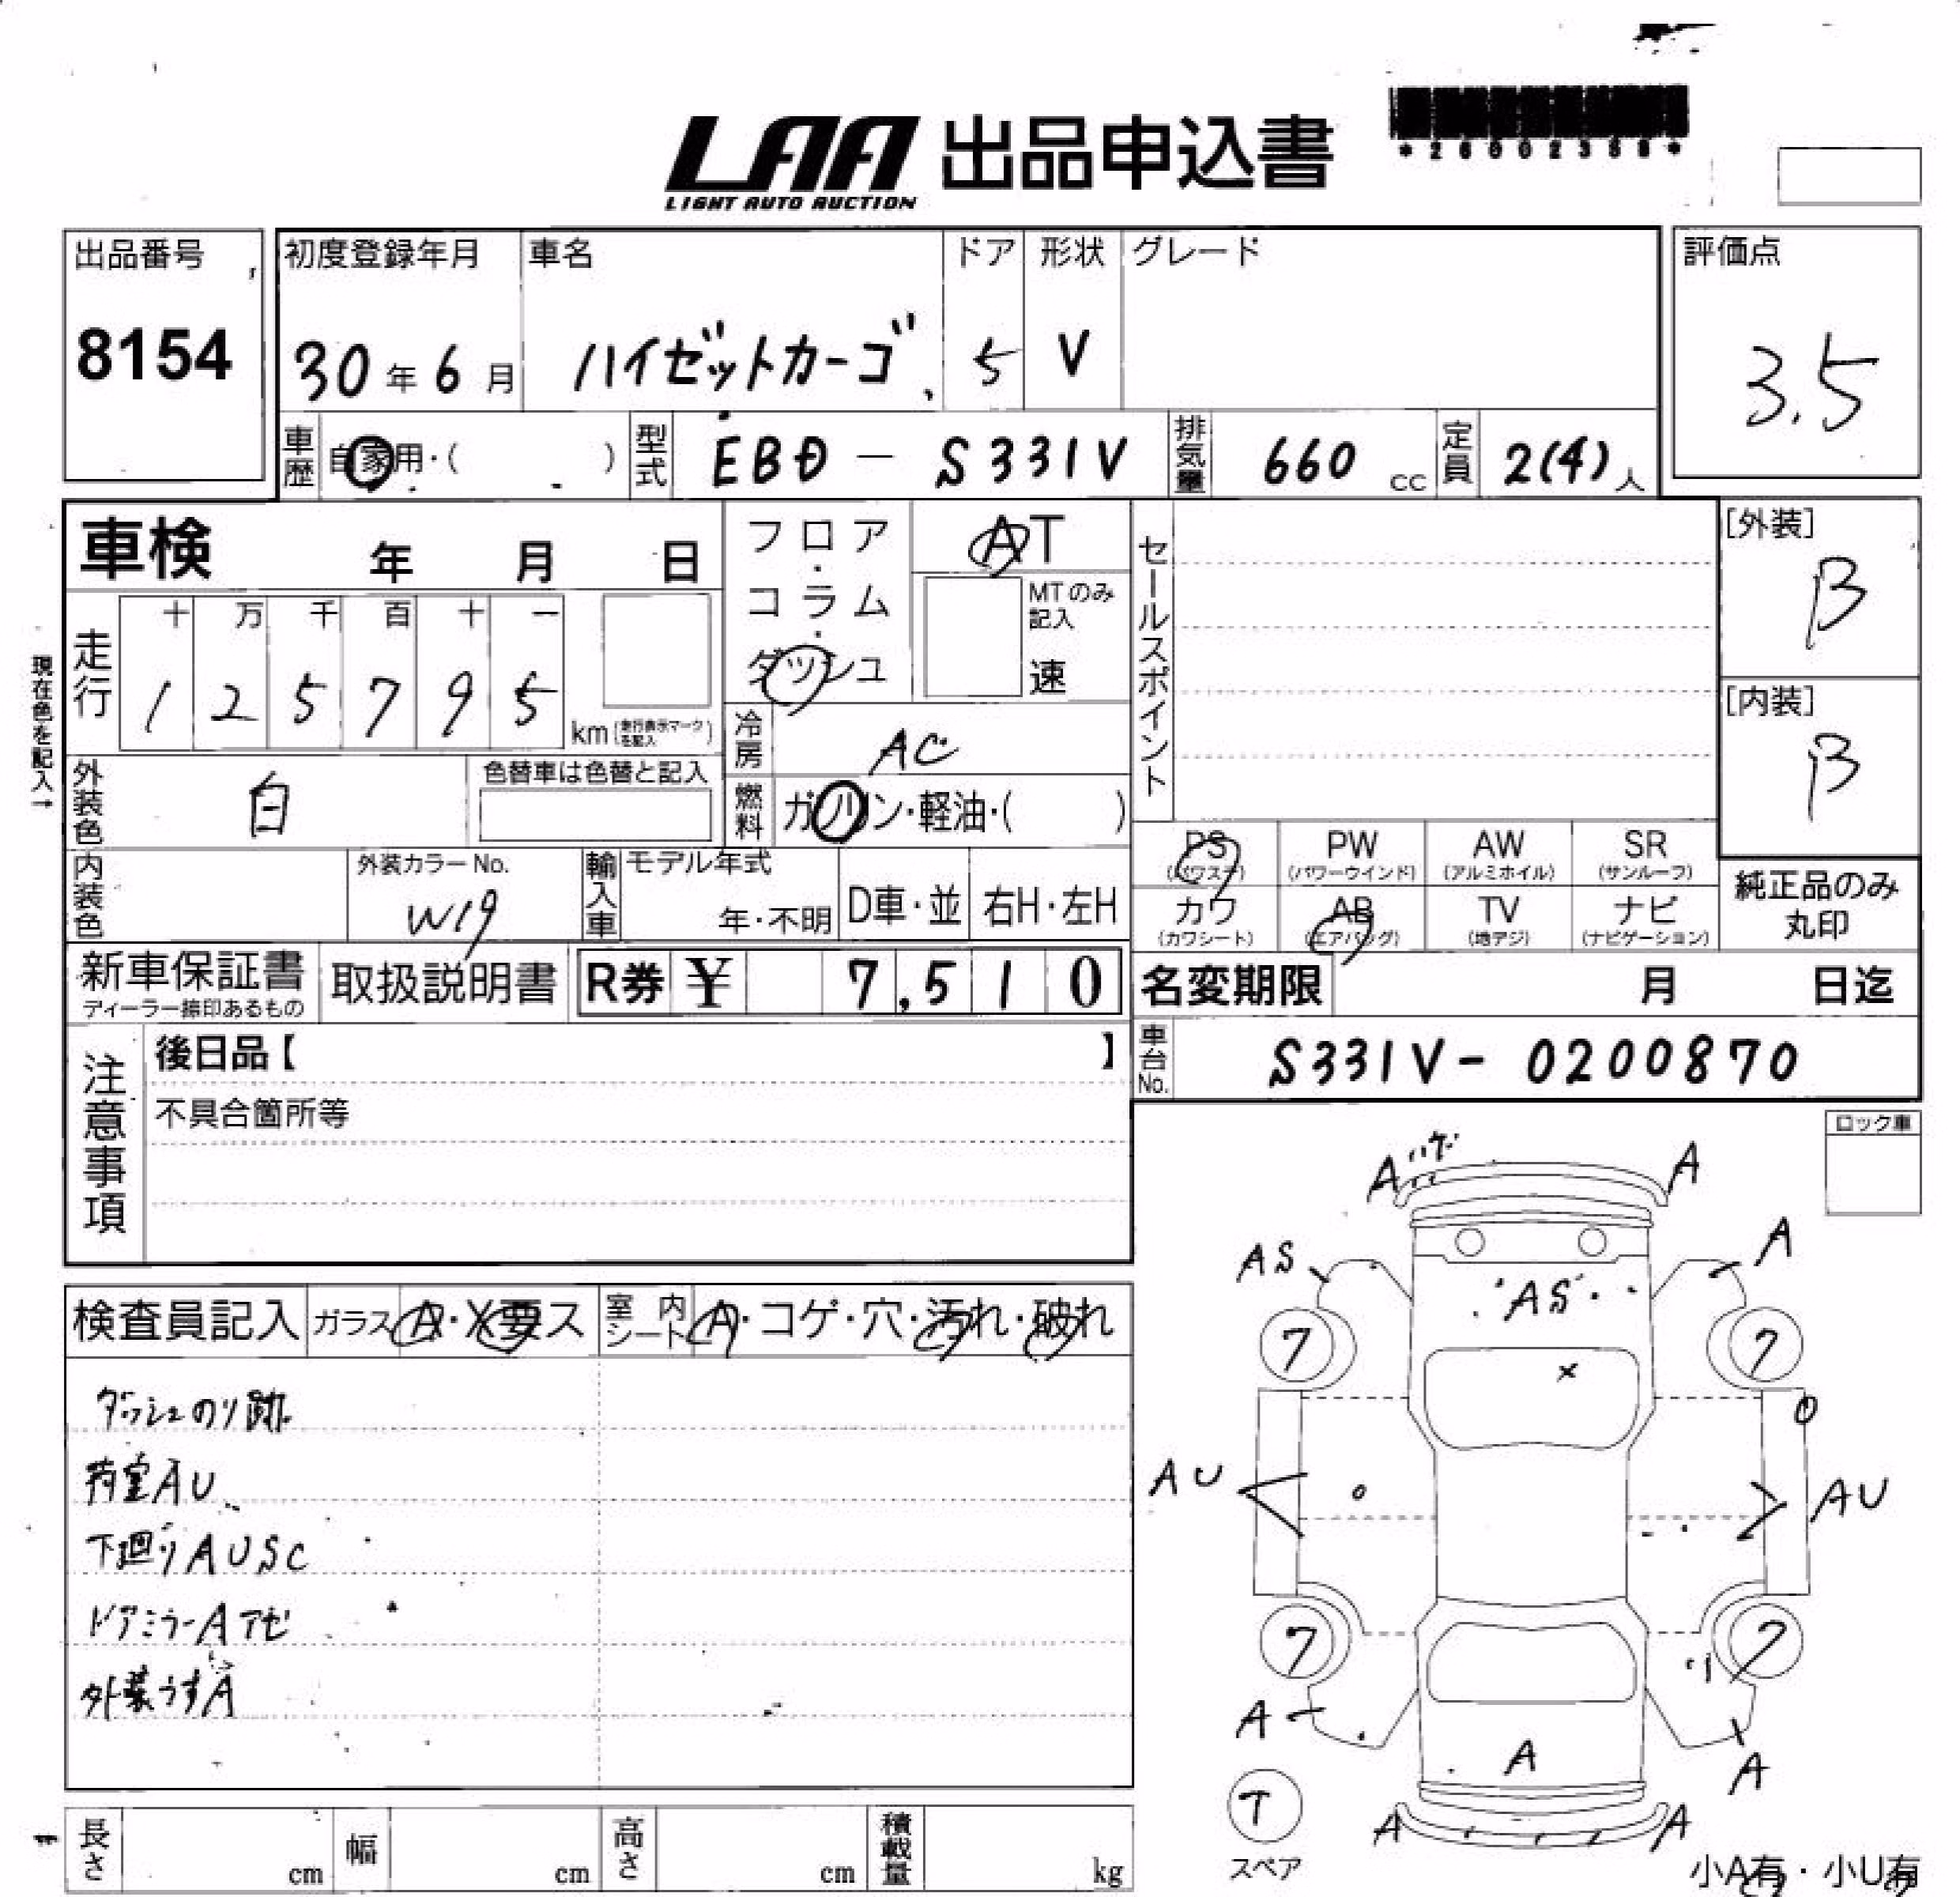 LAA 出品申込書
LIGHT AUTO AUCTION
出品番号
8154
初度登録年月
30年6月
車名
ハイゼットカーゴ
ドア
5
形状
V
グレード
評価点
3.5
車歴 自家用・( )
型式 EBD - S331V
排気量 660 cc
定員 2(4)人
車検 年 月 日
フロア・コラム・ダッシュ
AT
MTのみ記入
速
セールスポイント
[外装]
B
[内装]
B
現在色を記入→
走行
十 万 千 百 十 一
1 2 5 7 9 5
km(走行表示マークを記入)
冷房 AC
燃料 ガソリン・軽油・( )
外装色 白
色替車は色替と記入
内装色
外装カラーNo.
W19
輸入車
モデル年式
年・不明
D車・並
右H・左H
PS
(パワステ)
PW
(パワーウインド)
AW
(アルミホイル)
SR
(サンルーフ)
カワ
(カワシート)
AB
(エアバッグ)
TV
(地デジ)
ナビ
(ナビゲーション)
純正品のみ
丸印
新車保証書
ディーラー捺印あるもの
取扱説明書
R券 ¥ 7,510
名変期限 月 日迄
車台No. S331V-0200870
注意事項
後日品【 】
不具合箇所等
ロック車
検査員記入
ガラス A・X要ス
室内シート A・コゲ・穴・汚れ・破れ
ダッシュのり跡
荷室AU
下廻りAUSC
ドアミラーAアセ
外装うすA
A ハゲ A
AS A
AS
7 7
X
AU AU
7 7
A A
A
T
スペア
A A
小A有・小U有
長さ cm
幅 cm
高さ cm
積載量 kg